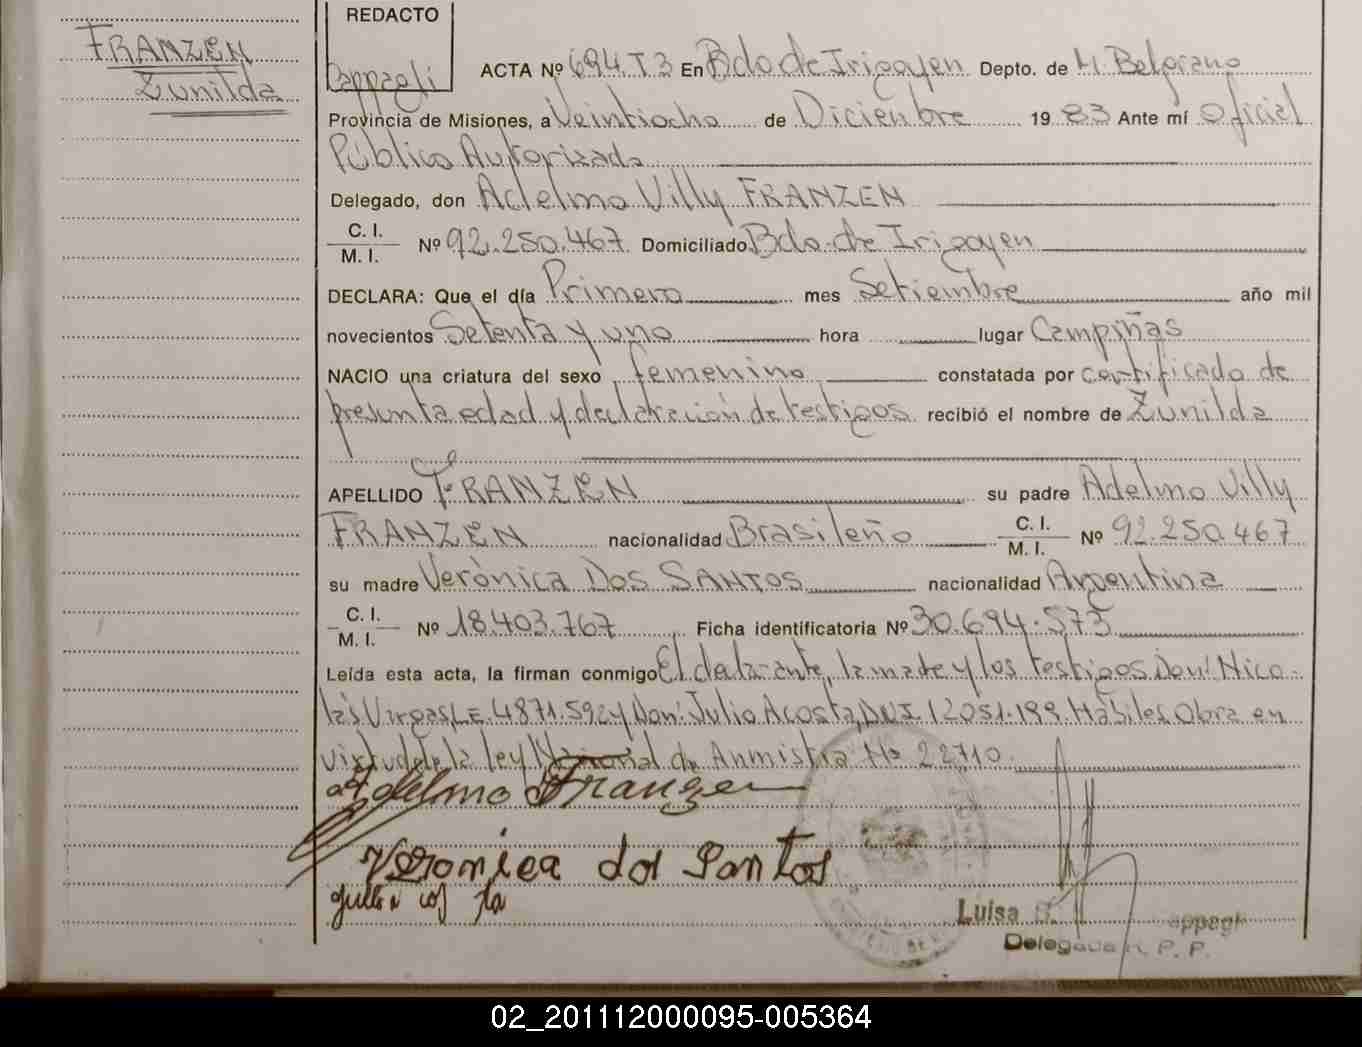 FRANZEN
Zunilda
REDACTO
Cappagli
ACTA Nº 694.T3 En Bdo de Irigoyen Depto. de M. Belgrano
Provincia de Misiones, a Veintiocho de Diciembre 1983 Ante mí Oficial
Público Autorizado
Delegado, don Adelmo Villy FRANZEN
C. I.
M. I. Nº 92.250.467 Domiciliado Bdo. de Irigoyen
DECLARA: Que el día Primero mes Setiembre año mil
novecientos Setenta y uno hora lugar Campiñas
NACIO una criatura del sexo femenino constatada por certificado de
presunta edad y declaración de testigos recibió el nombre de Zunilda
APELLIDO FRANZEN su padre Adelmo Villy
FRANZEN nacionalidad Brasileño C. I. M. I. Nº 92.250.467
su madre Verónica DOS SANTOS nacionalidad Argentina
C. I.
M. I. Nº 18.403.767 Ficha identificatoria Nº 30.694.573
Leída esta acta, la firman conmigo El declarante, la madre y los testigos Don: Nico-
lás Vargas LE. 4871.592 y Don: Julio Acosta DNI. 12051.199 Hábiles Obra en
virtud de la ley Nacional de Anmistia Nº 22710.
Adelmo Franzen
Veronica dos Santos
Luisa
Delegada R. P. P.
02_201112000095-005364